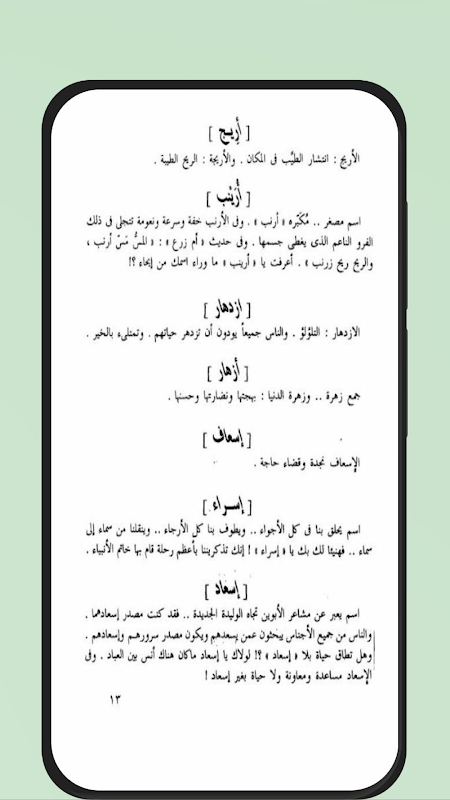 [ أريج ]
الأريج : انتشار الطيَّب فى المكان . والأريجة : الريح الطيبة .
[ أُرَيْنب ]
اسم مصغر .. مُكَبّره « أرنب » . وفى الأرنب خفة وسرعة ونعومة تتجلى فى ذلك
الفرو الناعم الذى يغطى جسمها . وفى حديث « أم زرع » : « المسُّ مَسّ أرنب ،
والريح ريح زرنب » . أعرفت يا « أرينب » ما وراء اسمك من إيحاء ؟!
[ ازدهار ]
الازدهار : التلؤلؤ . والناس جميعاً يودون أن تزدهر حياتهم . وتمتلىء بالخير .
[ أزهار ]
جمع زهرة .. وزهرة الدنيا : بهجتها ونضارتها وحسنها .
[ إسعاف ]
الإسعاف نجدة وقضاء حاجة .
[ إسراء ]
اسم يحلق بنا فى كل الأجواء .. ويطوف بنا كل الأرجاء .. وينقلنا من سماء إلى
سماء .. فهنيئا لك بك يا « إسراء » ! إنك تذكريننا بأعظم رحلة قام بها خاتم الأنبياء .
[ إسعاد ]
اسم يعبر عن مشاعر الأبوين تجاه الوليدة الجديدة .. فقد كنت مصدر إسعادهما .
والناس من جميع الأجناس يبحثون عمن يسعدهم ويكون مصدر سرورهم وإسعادهم .
وهل تطاق حياة بلا « إسعاد » ؟! لولاك يا إسعاد ماكان هناك أنس بين العباد . وفى
الإسعاد مساعدة ومعاونة ولا حياة بغير إسعاد !
١٣